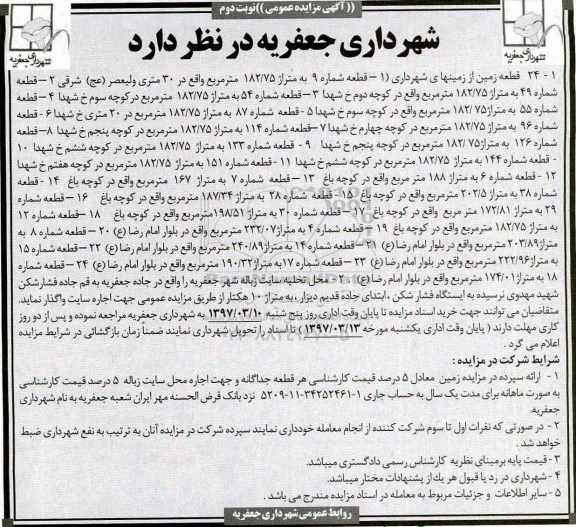 (( آگهی مزایده عمومی ))نوبت دوم
شهرداری جعفریه
شهرداری جعفریه
شهرداری جعفریه در نظر دارد
۱ - ۲۴ قطعه زمین از زمینها ی شهرداری (۱ – قطعه شماره ۹ به متراژ ۱۸۲/۷۵ مترمربع واقع در ۳۰ متری ولیعصر (عج) شرقی ۲ – قطعه
شماره ۴۹ به متراژ ۱۸۲/۷۵ مترمربع واقع در کوچه دوم خ شهدا ۳ – قطعه شماره ۵۴ به متراژ ۱۸۲/۷۵ مترمربع در کوچه سوم خ شهدا ۴ – قطعه
شماره ۵۵ به متراژ ۱۸۲/۷۵ مترمربع واقع در کوچه سوم خ شهدا ۵ - قطعه شماره ۸۷ به متراژ ۱۸۲/۷۵ مترمربع در ۲۰ متری خ شهدا ۶ - قطعه
شماره ۹۶ به متراژ ۱۸۲/۷۵ مترمربع در کوچه چهارم خ شهدا ۷ – قطعه شماره ۱۱۴ به متراژ ۱۸۲/۷۵ مترمربع در کوچه پنجم خ شهدا ۸ – قطعه
شماره ۱۲۶ به متراژ ۱۸۲/۷۵ مترمربع در کوچه پنجم خ شهدا ۹ - قطعه شماره ۱۳۳ به متراژ ۱۸۲/۷۵ مترمربع در کوچه ششم خ شهدا ۱۰
- قطعه شماره ۱۴۴ به متراژ ۱۸۲/۷۵ مترمربع در کوچه ششم خ شهدا ۱۱ - قطعه شماره ۱۵۱ به متراژ ۱۸۲/۷۵ مترمربع در کوچه هفتم خ شهدا
۱۲ - قطعه ۶ به متراژ ۱۸۸ متر مربع واقع در کوچه باغ ۱۳ – قطعه شماره ۷ به متراژ ۱۶۷ مترمربع واقع در کوچه باغ ۱۴ - قطعه
شماره ۳۸ به متراژ ۲۰۲/۵ مترمربع واقع در کوچه باغ ۱۵ – قطعه شماره ۲۸ به متراژ ۱۸۷/۳۴ مترمربع واقع در کوچه باغ ۱۶ – شماره
۲۹ به متراژ ۱۷۲/۸۱ متر مربع واقع در کوچه باغ ۱۷ – قطعه شماره ۳۰ به متراژ ۱۹۸/۵۱ مترمربع واقع در کوچه باغ ۱۸ – شماره ۱۲ به
به متراژ ۱۸۲/۷۵ مترمربع واقع در کوچه باغ ۱۹ – قطعه شماره ۴ به متراژ ۲۳۲/۰۷ مترمربع واقع در بلوار امام رضا (ع) ۲۰ – قطعه شماره ۸ به
متراژ ۲۰۳/۸۹ مترمربع واقع در بلوار امام رضا (ع) ۲۱ – قطعه شماره ۱۴ به متراژ ۲۴۰/۸۹ مترمربع واقع در بلوار امام رضا (ع) ۲۲ – شماره ۱۵
به متراژ ۲۲۲/۹۶ مترمربع واقع در بلوار امام رضا (ع) ۲۳ – قطعه شماره ۱۷ به متراژ ۱۹۰/۳۲ مترمربع واقع در بلوار رضا (ع) ۲۴ – قطعه شماره
۱۸ به متراژ ۱۷۴/۰۱ مترمربع واقع در بلوار امام رضا (ع) ۲ - محل تخلیه سایت زباله شهر جعفریه را واقع در جاده جعفریه به قم جاده فشارشکن
شهید مهدوی نرسیده به ایستگاه فشار شکن ، ابتدای جاده قدیم دیزار ، به متراژ ۱۰ هکتار از طریق مزایده عمومی جهت اجاره سایت واگذار نماید.
متقاضیان می توانند جهت خرید اسناد مزایده تا پایان وقت اداری روز پنج شنبه ۱۳۹۷/۰۳/۱۰ به شهرداری جعفریه مراجعه نموده و پس از دو روز
کاری مهلت دارند ( پایان وقت اداری یکشنبه مورخه ۱۳۹۷/۰۳/۱۳ ) تا اسناد را تحویل شهرداری نمایند ضمناً زمان بازگشائی در شرایط مزایده
اعلام می گرد .
شرایط شرکت در مزایده :
۱ - ارائه سپرده در مزایده زمین معادل ۵ درصد قیمت کارشناسی هر قطعه جداگانه و جهت اجاره محل سایت زباله ۵ درصد قیمت کارشناسی
به صورت ماهانه برای مدت یک سال به حساب جاری ۱-۳۴۲۵۲۴۶۱-۱۱-۵۲۰۹ نزد بانک قرض الحسنه مهر ایران شعبه جعفریه به نام شهرداری
جعفریه.
۲ - در صورتی که نفرات اول تا سوم شرکت کننده از انجام معامله خودداری نمایند سپرده شرکت در مزایده آنان به ترتیب به نفع شهرداری ضبط
خواهد شد .
۳ - قیمت پایه برمبنای نظریه کارشناس رسمی دادگستری میباشد.
۴ - شهرداری در رد یا قبول هر یك از پشنهادات مختار میباشد.
۵ - سایر اطلاعات و جزئیات مربوط به معامله در اسناد مزایده مندرج می باشد .
روابط عمومی شهرداری جعفریه